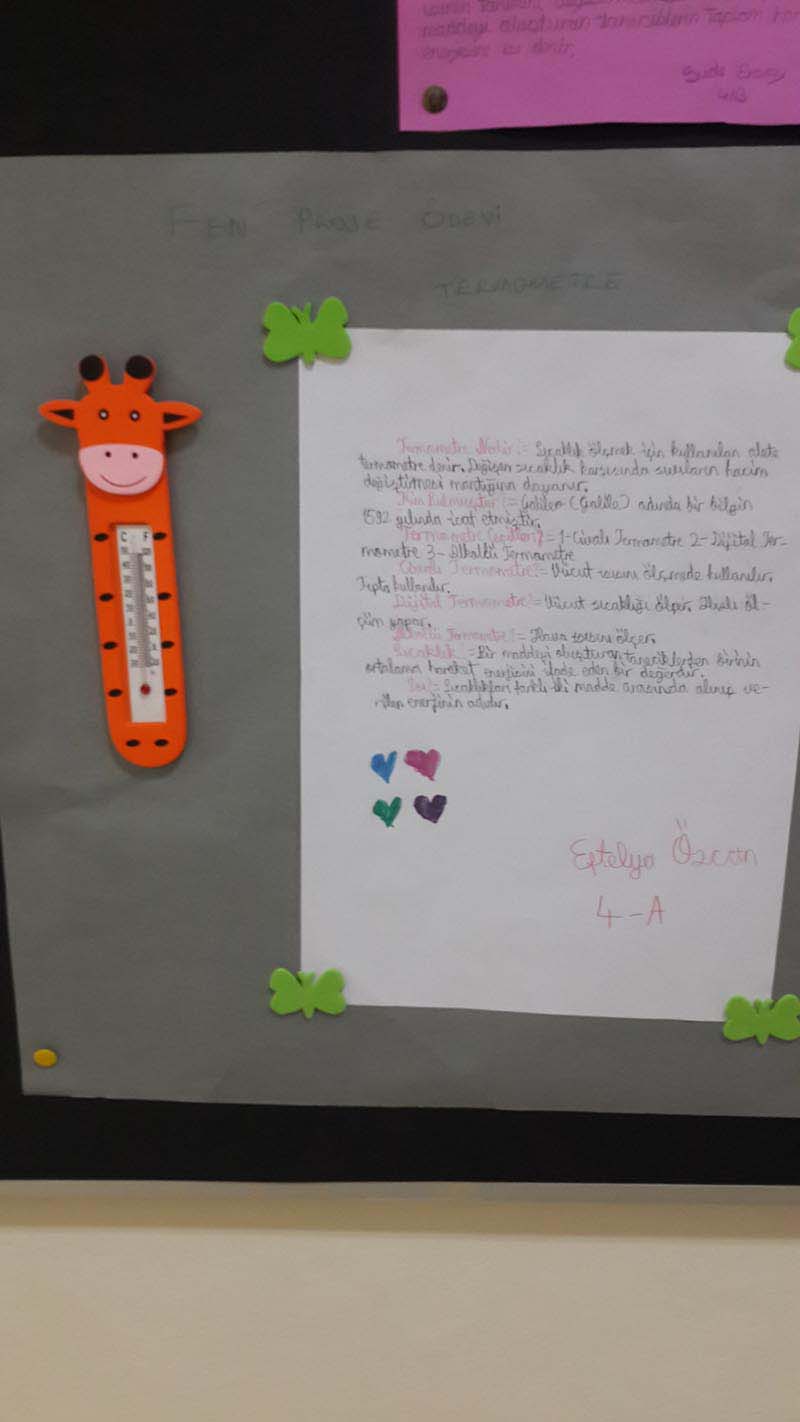 maddeyi oluşturan taneciklerin toplam
enerjisine ısı denir.
4/B
FEN PROJE ÖDEVİ
TERMOMETRE
C F
Termometre Nedir:= Sıcaklık ölçmek için kullanılan alete
termometre denir. Değişen sıcaklık karşısında sıvıların hacim
değiştirmesi mantığına dayanır.
Kim Bulmuştur:= Galileo (Galile) adında bir bilgin
1592 yılında icat etmiştir.
Termometre Çeşitleri?= 1-Civalı Termometre 2-Dijital Ter-
mometre 3- Alkollü Termometre
Cıvalı Termometre:= Vücut ısısını ölçmede kullanılır.
Tıpta kullanılır.
Dijital Termometre:= Vücut sıcaklığı ölçer. Hızlı öl-
çüm yapar.
Alkollü Termometre:= Hava ısısını ölçer.
Sıcaklık:= Bir maddeyi oluşturan taneciklerden birinin
ortalama hareket enerjisini ifade eden bir değerdir.
Isı:= Sıcaklıkları farklı iki madde arasında alınıp ve-
rilen enerjinin adıdır.
Eftelya Özcan
4-A